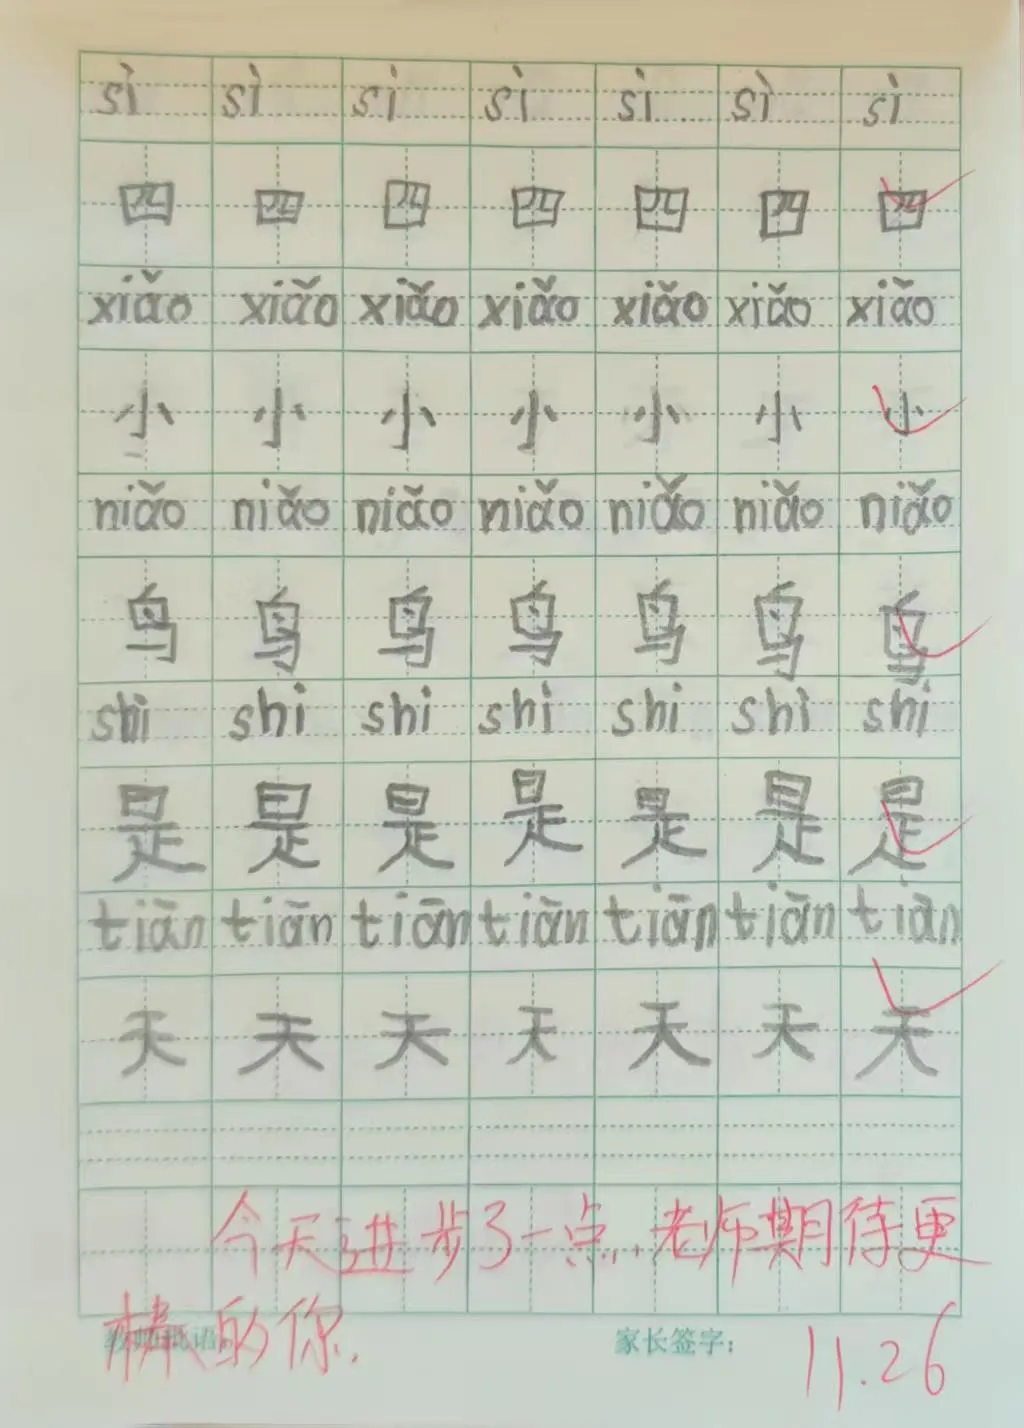 sì sì sì sì sì sì sì
四 四 四 四 四 四 四
xiǎo xiǎo xiǎo xiǎo xiǎo xiǎo xiǎo
小 小 小 小 小 小 小
niǎo niǎo niǎo niǎo niǎo niǎo niǎo
鸟 鸟 鸟 鸟 鸟 鸟 鸟
shì shì shì shì shì shì shì
是 是 是 是 是 是 是
tiān tiān tiān tiān tiān tiān tiān
天 天 天 天 天 天 天
今天进步了一点,老师期待更
棒的你.
家长签字:
11.26